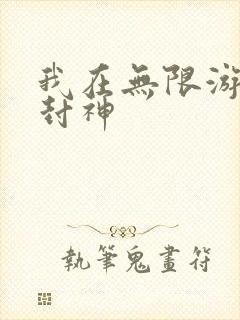 我在無限游
封神
執筆鬼畫符